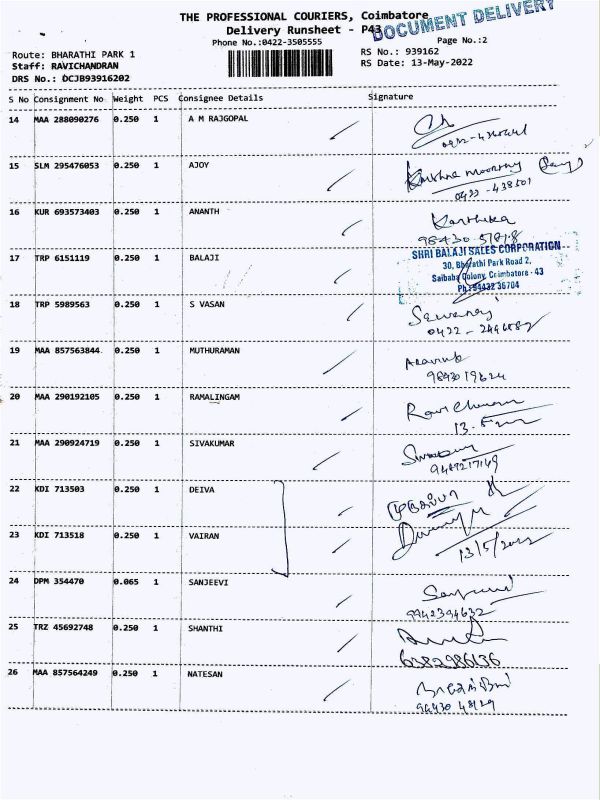 THE PROFESSIONAL COURIERS, Coimbatore
DOCUMENT DELIVERY
Delivery Runsheet - P43
Phone No.:0422-3505555
Page No.:2
Route: BHARATHI PARK 1
RS No.: 939162
Staff: RAVICHANDRAN
RS Date: 13-May-2022
DRS No.: DCJB93916202
S No Consignment No Weight PCS Consignee Details Signature
14 MAA 288090276 0.250 1 A M RAJGOPAL
15 SLM 295476053 0.250 1 AJOY
Krishna moorthy
16 KUR 693573403 0.250 1 ANANTH
Karthika
17 TRP 6151119 0.250 1 BALAJI
SHRI BALAJI SALES CORPORATION
30, Bharathi Park Road 2,
Saibaba Colony, Coimbatore - 43
Ph.: 94432 36704
18 TRP 5989563 0.250 1 S VASAN
19 MAA 857563844 0.250 1 MUTHURAMAN
9843019624
20 MAA 290192105 0.250 1 RAMALINGAM
21 MAA 290924719 0.250 1 SIVAKUMAR
22 KDI 713503 0.250 1 DEIVA
23 KDI 713518 0.250 1 VAIRAN
13/5/2022
24 DPM 354470 0.065 1 SANJEEVI
9942394632
25 TRZ 45692748 0.250 1 SHANTHI
6382986136
26 MAA 857564249 0.250 1 NATESAN
94430 48129